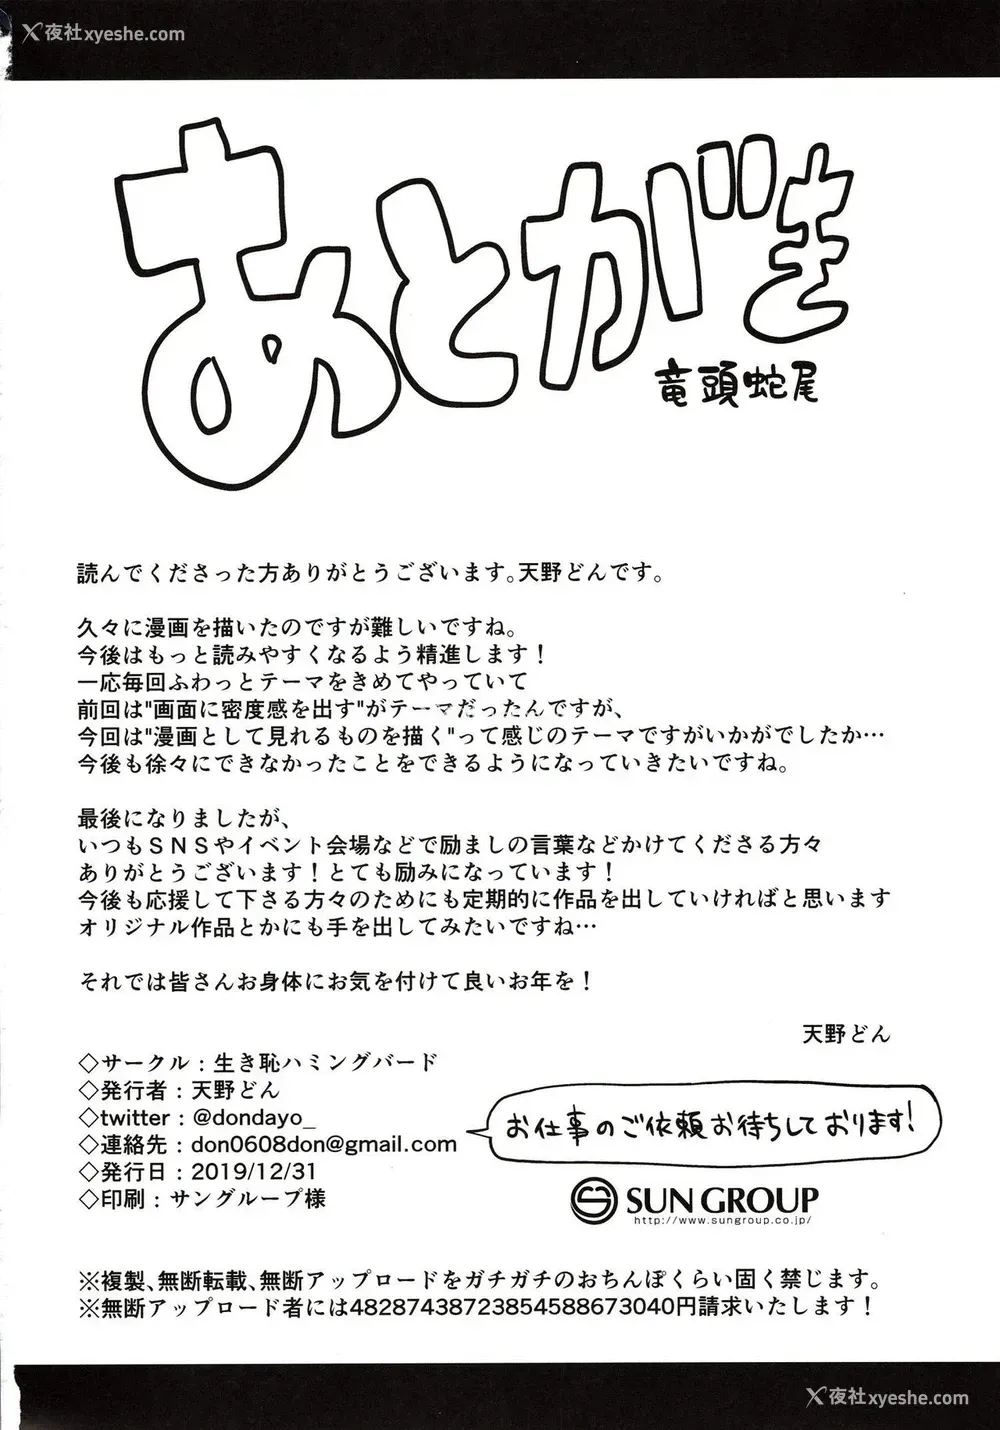 X夜社xyeshe.com
あとがき
竜頭蛇尾
読んでくださった方ありがとうございます。天野どんです。
久々に漫画を描いたのですが難しいですね。
今後はもっと読みやすくなるよう精進します！
一応毎回ふわっとテーマをきめてやっていて
前回は"画面に密度感を出す"がテーマだったんですが、
今回は"漫画として見れるものを描く"って感じのテーマですがいかがでしたか…
今後も徐々にできなかったことをできるようになっていきたいですね。
最後になりましたが、
いつもＳＮＳやイベント会場などで励ましの言葉などかけてくださる方々
ありがとうございます！とても励みになっています！
今後も応援して下さる方々のためにも定期的に作品を出していければと思います
オリジナル作品とかにも手を出してみたいですね…
それでは皆さんお身体にお気を付けて良いお年を！
天野どん
◇サークル：生き恥ハミングバード
◇発行者：天野どん
◇twitter：@dondayo_
◇連絡先：don0608don@gmail.com
お仕事のご依頼お待ちしております！
◇発行日：2019/12/31
◇印刷：サングループ様
SUN GROUP
http://www.sungroup.co.jp/
※複製、無断転載、無断アップロードをガチガチのおちんぽくらい固く禁じます。
※無断アップロード者には48287438723854588673040円請求いたします！
X夜社xyeshe.com